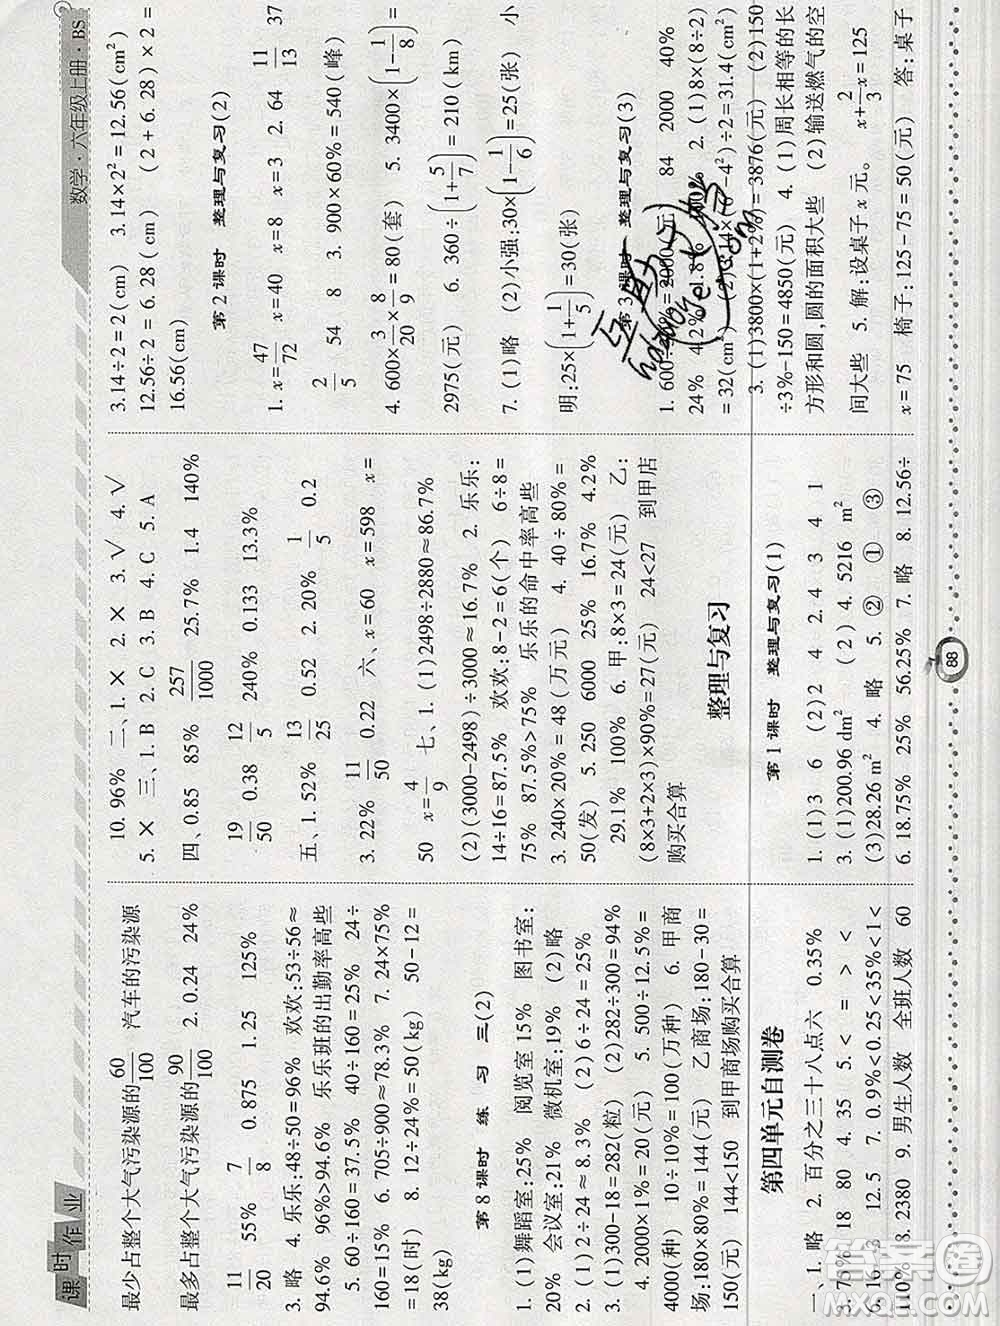 课时作业
数学·六年级上册·BS
最少占整个大气污染源的60/100 汽车的污染源
最多占整个大气污染源的90/100 2. 0.24 24%
11/20 55% 7/8 0.875 1.25 125%
3. 略 4. 乐乐:48÷50=96% 欢欢:53÷56≈
94.6% 96%>94.6% 乐乐班的出勤率高些
5. 60÷160=37.5% 40÷160=25% 24÷
160=15% 6. 705÷900≈78.3% 7. 24×75%
=18(时) 8. 12÷24%=50(kg) 50-12=
38(kg)
第8课时 练 习 三(2)
1. (1)舞蹈室:25% 阅览室15% 图书室:
20% 会议室:21% 微机室:19% (2)略
2. (1)2÷24≈8.3% (2)6÷24=25%
3. (1)300-18=282(粒) (2)282÷300=94%
4. 2000×1%=20(元) 5. 500÷12.5%=
4000(种) 10÷10%=100(万种) 6. 甲商
场:180×80%=144(元) 乙商场:180-30=
150(元) 144<150 到甲商场购买合算
第四单元自测卷
一、1. 略 2. 百分之三十八点六 0.35%
3. 75% 18 80 4. 35 5. < = > <
6. 16 3 12.5 7. 0.9%<0.25<35%<1<
110% 8. 2380 9. 男生人数 全班人数 60
10. 96% 二、1. × 2. × 3. √ 4. √
5. × 三、1. B 2. C 3. B 4. C 5. A
四、0.85 85% 257/1000 25.7% 1.4 140%
19/50 0.38 12/5 240% 0.133 13.3%
五、1. 52% 13/25 0.52 2. 20% 1/5 0.2
3. 22% 11/50 0.22 六、x=60 x=598 x=
50 x=4/9 七、1. (1)2498÷2880≈86.7%
(2)(3000-2498)÷3000≈16.7% 2. 乐乐:
14÷16=87.5% 欢欢:8-2=6(个) 6÷8=
75% 87.5%>75% 乐乐的命中率高些
3. 240×20%=48(万元) 4. 40÷80%=
50(发) 5. 250 6000 25% 16.7% 4.2%
29.1% 100% 6. 甲:8×3=24(元) 乙:
(8×3+2×3)×90%=27(元) 24<27 到甲店
购买合算
整理与复习
第1课时 整理与复习(1)
1. (1)3 6 (2)2 4 2. 4 3 4 1
3. (1)200.96 dm² (2) 4. 5216 m²
(3)28.26 m² 4. 略 5. ② ① ③
6. 18.75% 25% 56.25% 7. 略 8. 12.56÷
3.14÷2=2(cm) 3.14×2²=12.56(cm²)
12.56÷2=6.28(cm) (2+6.28)×2=
16.56(cm)
第2课时 整理与复习(2)
1. x=47/72 x=40 x=8 x=3 2. 64 11/13 37
2/5 54 8 3. 900×60%=540(峰)
4. 600×3/20×8/9=80(套) 5. 3400×(1-1/8)=
2975(元) 6. 360÷(1+5/7)=210(km)
7. (1)略 (2)小强:30×(1-1/6)=25(张) 小
明:25×(1+1/5)=30(张)
第3课时 整理与复习(3)
84 2000 40%
24% 4.2% 2. (1)8×(8÷2)
=32(cm²) ÷2=31.4(cm²)
3. (1)3800×(1+2%)=3876(元) (2)150
÷3%-150=4850(元) 4. (1)周长相等的长
方形和圆,圆的面积大些 (2)输送燃气的空
间大些 5. 解:设桌子x元。 x+2/3x=125
x=75 椅子:125-75=50(元) 答:桌子
88
答案圈